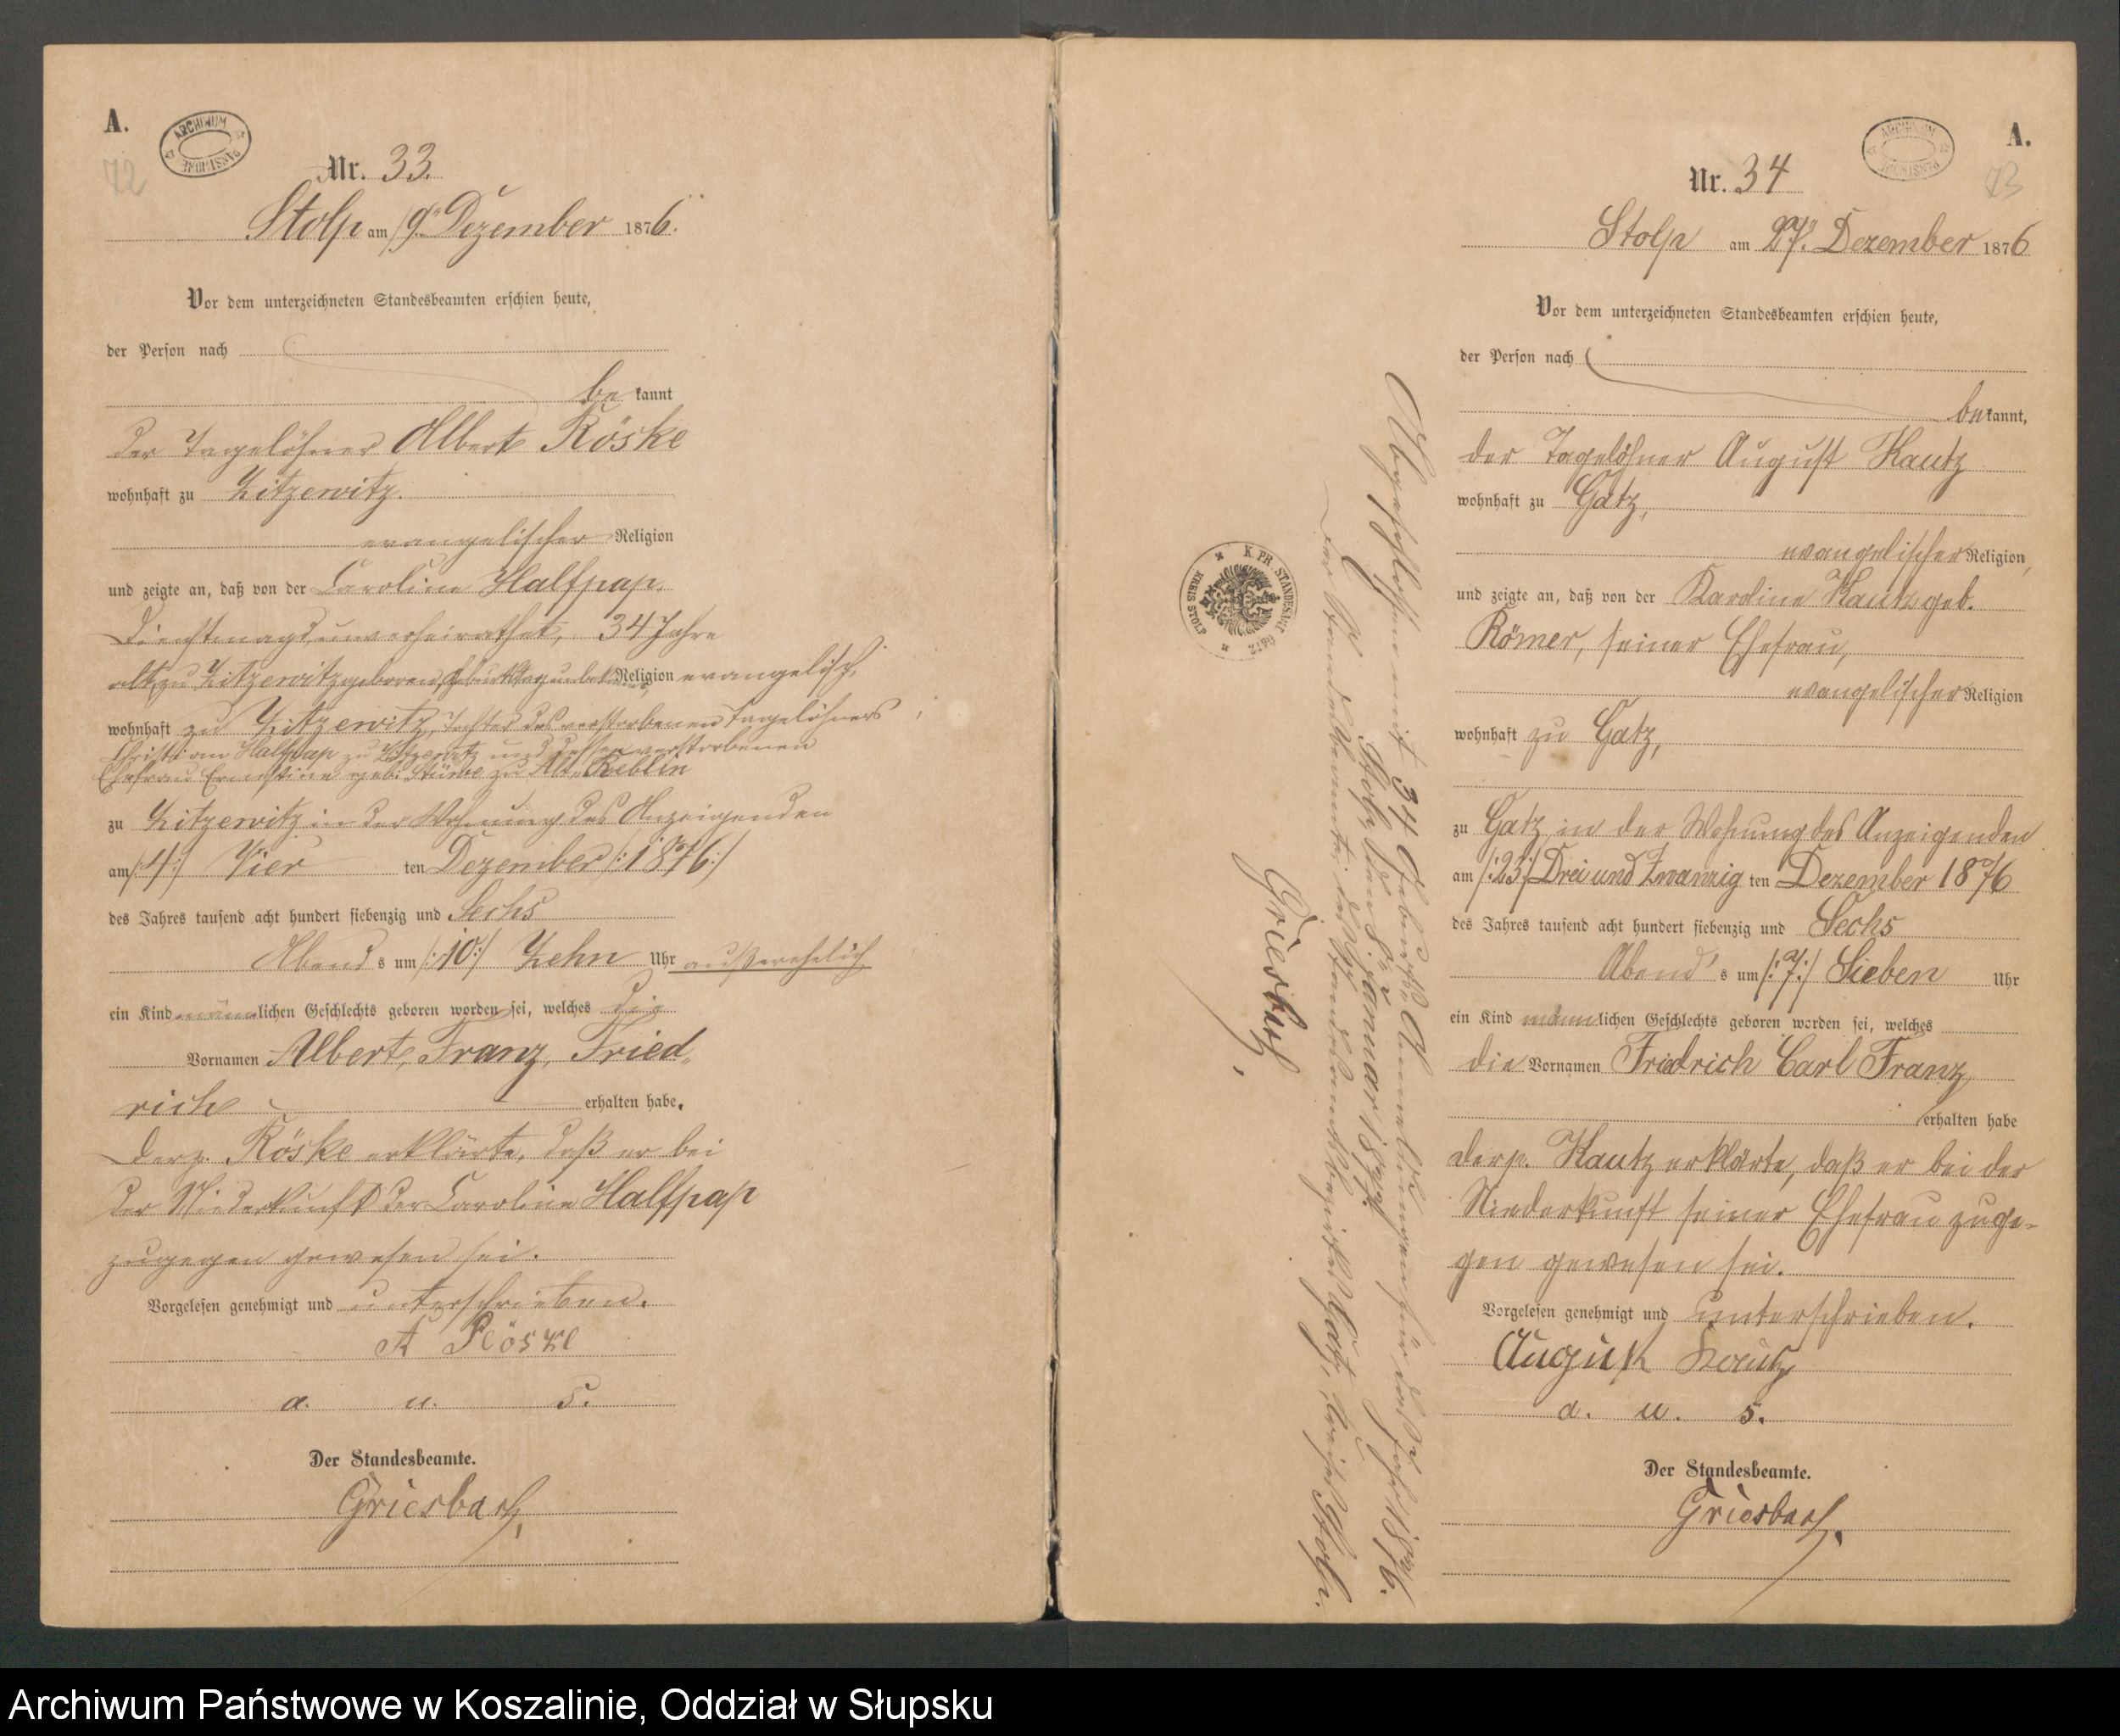 A.
ARCHIWUM PAŃSTWOWE
72
Nr. 33.
Stolp am 9ten Dezember 1876.
Vor dem unterzeichneten Standesbeamten erschien heute,
der Person nach
be kannt
der Tagelöhner Albert Röske
wohnhaft zu Zitzewitz.
evangelischer Religion
und zeigte an, daß von der Caroline Halfpap.
Dienstmagd, unverheirathet, 34 Jahre
alt, zu Zitzewitz geboren, Religion evangelisch,
wohnhaft zu Zitzewitz, Tochter des verstorbenen Tagelöhners
Christian Halfpap zu Zitzewitz und dessen verstorbenen
Ehefrau Ernestine geb: zu Alt Reblin
zu Zitzewitz in der Wohnung des Anzeigenden
am /:4:/ Vier ten Dezember /:1876:/
des Jahres tausend acht hundert siebenzig und Sechs
Abend s um /:10:/ Zehn Uhr außerehelich
ein Kind männlichen Geschlechts geboren worden sei, welches die
Vornamen Albert, Franz, Fried-
rich erhalten habe.
Der p. Röske erklärte, daß er bei
der Niederkunft der Caroline Halfpap
zugegen gewesen sei.
Vorgelesen genehmigt und unterschrieben.
A Röske
a. u. s.
Der Standesbeamte.
Griesbach,
A.
ARCHIWUM PAŃSTWOWE
73
Nr. 34
Stolp am 27ten Dezember 1876
Vor dem unterzeichneten Standesbeamten erschien heute,
der Person nach
be kannt,
der Tagelöhner August Kautz
wohnhaft zu Gatz,
evangelischer Religion,
und zeigte an, daß von der Karoline Kautz geb.
Römer, seiner Ehefrau,
evangelischer Religion
wohnhaft zu Gatz,
zu Gatz in der Wohnung des Anzeigenden
am /:23:/ Drei und Zwanzig ten Dezember 1876
des Jahres tausend acht hundert siebenzig und Sechs
Abend's um /:7:/ Sieben Uhr
ein Kind männlichen Geschlechts geboren worden sei, welches
die Vornamen Friedrich Carl Franz
erhalten habe
Der p. Kautz erklärte, daß er bei der
Niederkunft seiner Ehefrau zuge-
gen gewesen sei.
Vorgelesen genehmigt und unterschrieben.
August Kautz
a. u. s.
Der Standesbeamte.
Griesbach.
Abgeschlossen mit 34 Geburts Anmeldungen für das Jahr 1876.
Stolp, den 8. Januar 1877.
Der Standesbeamte des Standesamtsbezirks Gatz, Kreises Stolp.
Griesbach,
K. PR. STANDESAMT GATZ KREIS STOLP
Archiwum Państwowe w Koszalinie, Oddział w Słupsku